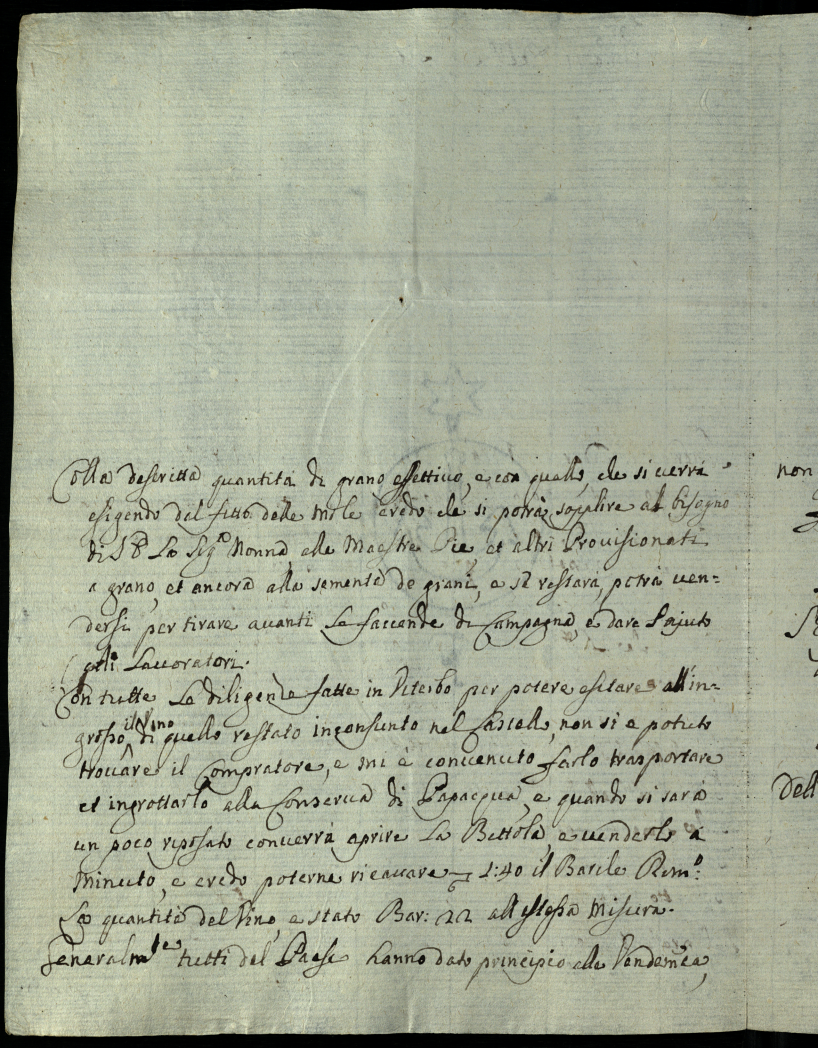 Colla descritta quantità di grano effettivo, e con quello, che si verrà
esigendo del fitto delle mole credo che si potrà supplire al bisogno
di S. E. La Sig.ra Nonna, alle Maestre Pie, et altri Provisionati
a grano, et ancora alla sementa de grani, e se restarà, potrà ven-
dersi per tirare avanti le faccende di Campagna, e dare l'ajuto
alli Lavoratori.
Con tutte le diligenze fatte in Viterbo per potere esitare all'in-
grosso il Vino di quello restato inconsunto nel Castello, non si è potuto
trovare il Compratore, e mi è convenuto farlo trasportare
et ingrottarlo alla Conserva di Papacqua, e quando si sarà
un poco riposato converrà aprire la Bettola, e venderlo a
minuto, e credo poterne ricavare 1:40 il Barile Rom.o:
La quantità del Vino, è stato Bar: 22 all'istessa misura.
Generalm.te tutti del Paese hanno dato principio alla Vendemia,
non
Dell